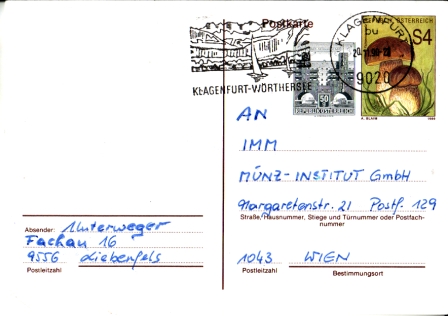 Postkarte
KLAGENFURT-WÖRTHERSEE
KLAGENFURT
9020
ÖSTERREICH
S4
50
REPUBLIK ÖSTERREICH
AN
IMM
MÜNZ-INSTITUT GmbH
Margaretenstr. 21 Postf. 129
Straße, Hausnummer, Stiege und Türnummer oder Postfach-
nummer
1043 WIEN
Postleitzahl Bestimmungsort
Absender: Unterweger
Fachau 16
9556 Liebenfels
Postleitzahl